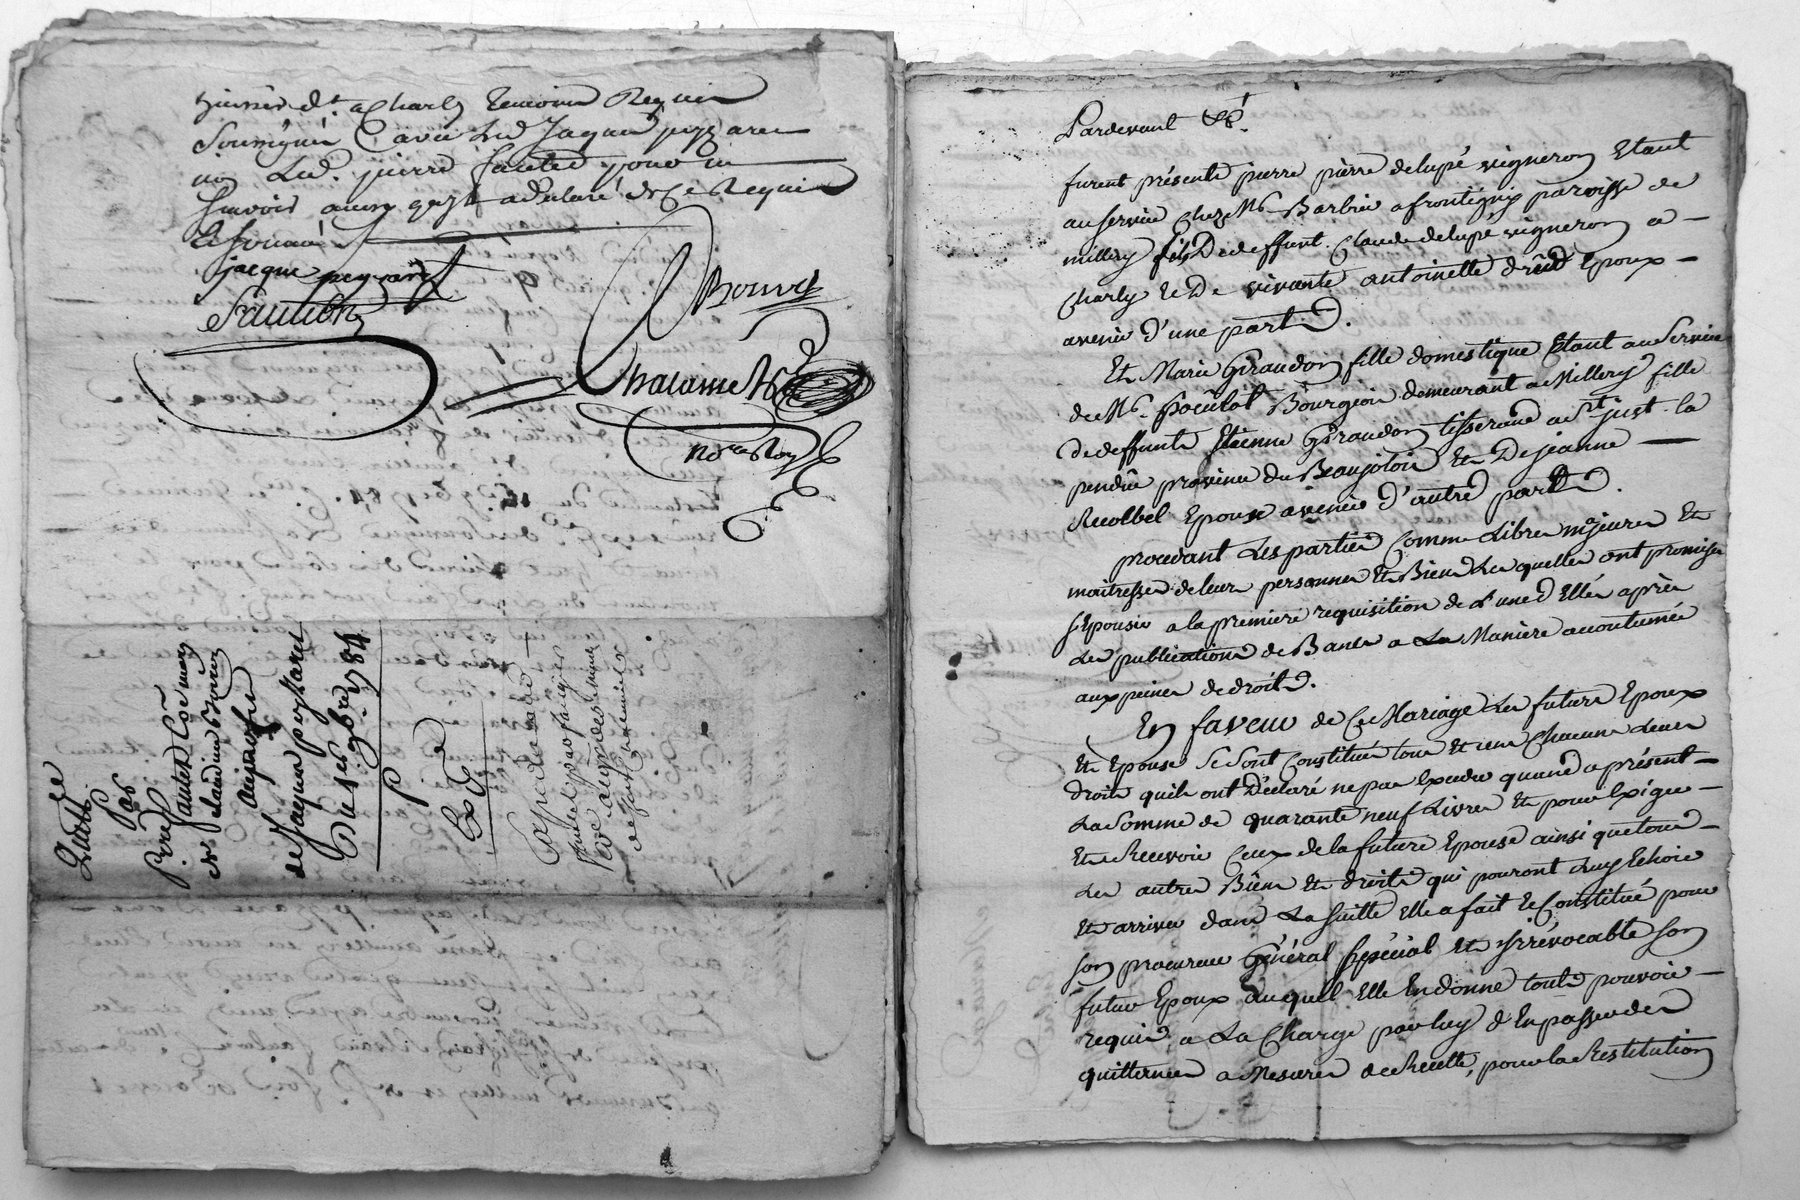 a Charly temoins Requis
Soussignés avec Led. Jaques peyzaret
non Led. pierre fautel pour ne
Sçavoir ainsy qu'il a declaré de Ce Requis
jacque peyzaret
Bouvet
Chalamel
nore Roy
Quittce
Par
Pierre fautel Coe mary
de claudine
Au proffit
de Jaques peyzaret
Du 9bre 1784
P
Expedié
Pardevant &c.
furent présents pierre pierre delupé vigneron Etant
au service Chez Mr. Barbier a frontigny paroisse de
millery fils De deffunt Claude delupé vigneron a
Charly et De vivante antoinette Epoux
avenir d'une part.
Et Marie Giraudon fille domestique Etant au Service
de Mr. Bourgeois demeurant a Millery fille
De deffunts Etienne Giraudon tisserand a St. just la
pendüe province du Beaujolois Et De jeanne
Recolbel Epouse avenir d'autre part.
procedant Les parties Comme Libres majeures Et
maitresses de leurs personnes Et Biens Lesquelles ont promis
s'Epouser a la premiere requisition de L'une d'Elles après
Les publications de Bancs a La Manière accoutumée
aux peines de droit.
En faveur de Ce Mariage Les futurs Epoux
Et Epouse Se Sont Constitués tous Et uns Chacuns Leurs
droits qu'ils ont Déclaré ne pas Exceder quand a présent
La Somme de quarante neuf Livres Et pour Exiger
Et Recevoir Ceux de la future Epouse ainsi que tous
Les autres Biens Et droits qui pouront Luy Echoir
Et arriver dans La Suitte Elle a fait Et Constitué pour
son procureur Général Spécial Et irrévocable Son
futur Epoux auquel Elle En donne tout pouvoir
requis, a La Charge par luy d'En passer des
quittances a Mesures de Recette, pour la Restitution